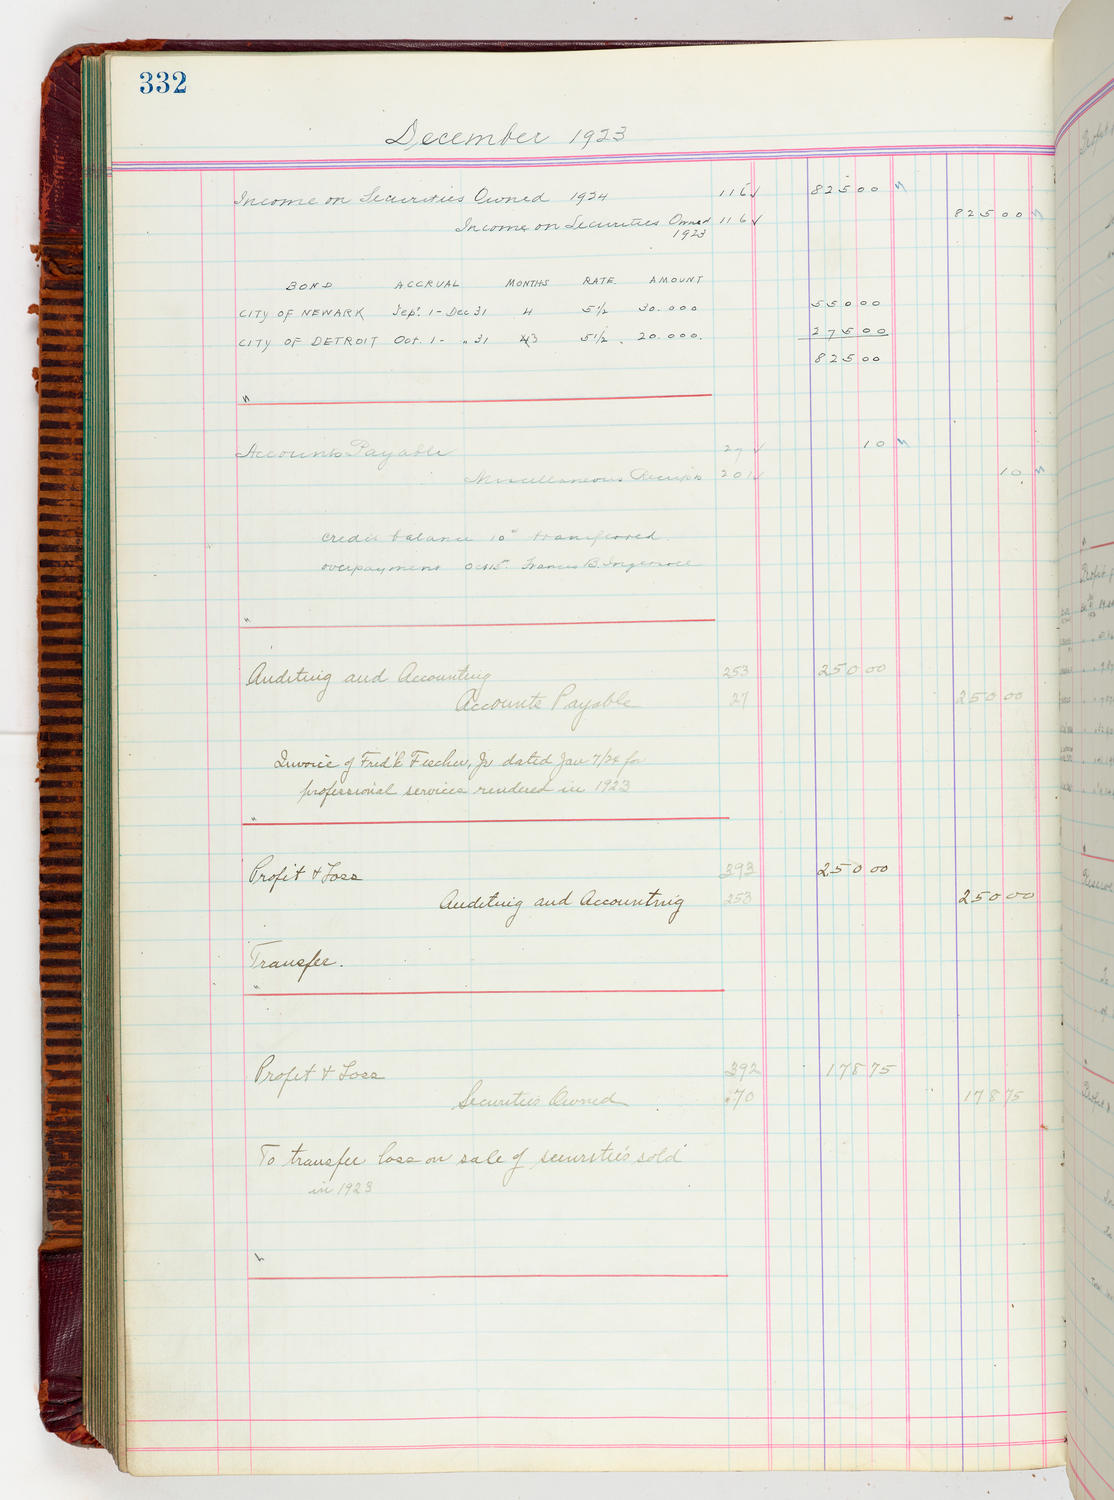 332
December 1923
Income on Securities Owned 1924 116 ✓ 825 00
Income on Securities Owned 116 ✓ 825 00
1923
BOND ACCRUAL MONTHS RATE. AMOUNT
CITY OF NEWARK Sept. 1 - Dec 31 4 5½ 30.000 550 00
CITY OF DETROIT Oct. 1 - " 31 3 5½ 20.000. 275 00
825 00
"
Accounts Payable 27 ✓ 10
Miscellaneous Receipts 201 ✓ 10
credit balance 10¢ transferred.
overpayment Oct 15. Francis B.
"
Auditing and Accounting 253 250 00
Accounts Payable 27 250 00
Invoice of Fred'k Fischer, Jr dated Jan 7/24 for
professional services rendered in 1923
"
Profit & Loss 393 250 00
Auditing and Accounting 253 250 00
Transfer.
"
Profit & Loss 392 178 75
Securities Owned 70 178 75
To transfer loss on sale of securities sold
in 1923